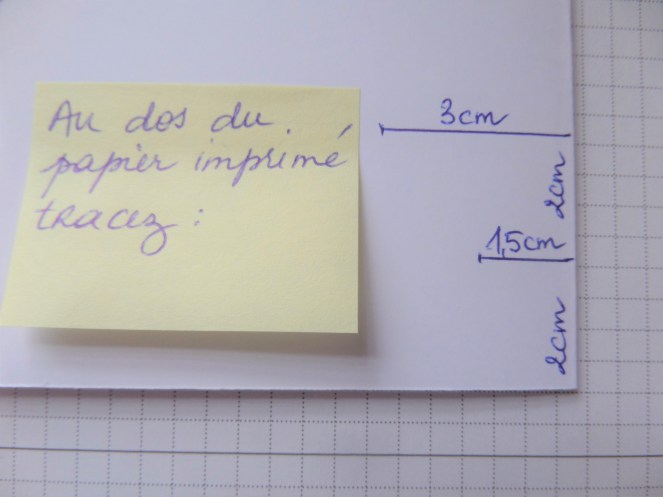 Au dos du
papier imprimé
tracez :
3cm
2cm
1,5cm
2cm